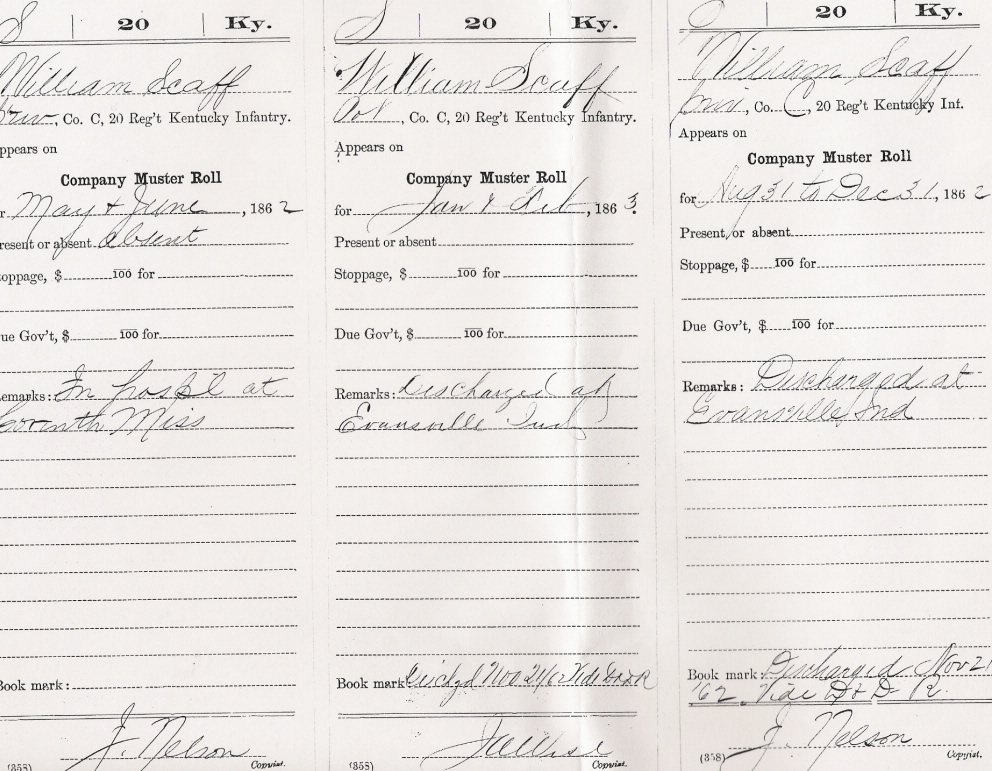 S 20 Ky.
William Scaff
Priv, Co. C, 20 Reg't Kentucky Infantry.
ppears on
Company Muster Roll
r May & June, 1862
resent or absent absent
toppage, $ 100 for
ue Gov't, $ 100 for
emarks: In hospl at
Corinth Miss
Book mark:
J. Nelson
(358) Copyist.
S 20 Ky.
William Scaff
Pvt, Co. C, 20 Reg't Kentucky Infantry.
Appears on
Company Muster Roll
for Jan & Feb, 1863.
Present or absent
Stoppage, $ 100 for
Due Gov't, $ 100 for
Remarks: Discharged at
Evansville Ind
Book mark: Dischgd Nov 21/62 Vide D & D R
(358) Copyist.
20 Ky.
William Scaff
Priv, Co. C, 20 Reg't Kentucky Inf.
Appears on
Company Muster Roll
for Aug 31 to Dec 31, 1862
Present or absent
Stoppage, $ 100 for
Due Gov't, $ 100 for
Remarks: Discharged at
Evansville, Ind
Book mark: Discharged Nov 21
'62. Vide D & D R.
J. Nelson
(358) Copyist.